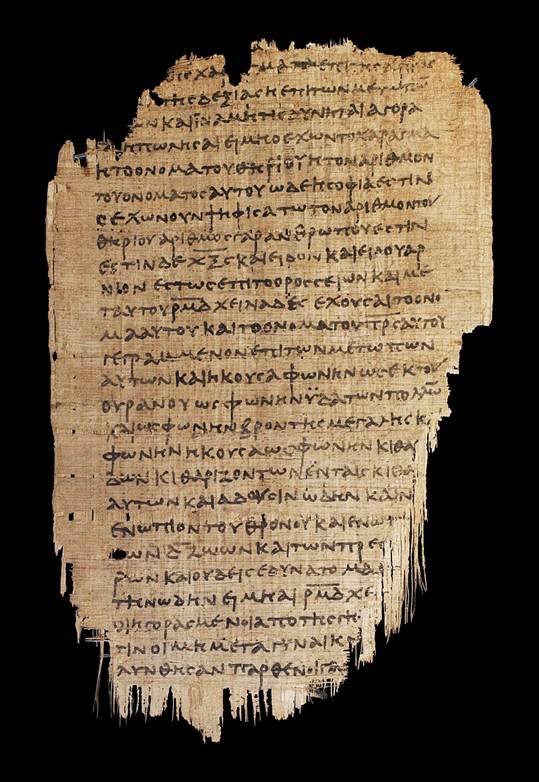 ΧΑ ΓΜΑΤΑ ΕΠΙ ΤΗC
ΤΗC ΔΕΞΙΑC Η ΕΠΙ ΤΩΝ ΜΕΤΩΠΩ
ΩΝ ΚΑΙ ΙΝΑ ΜΗ ΤΙC ΔΥΝΗΤΑΙ ΑΓΟΡΑ
Η ΠΩΛΗCΑΙ ΕΙ ΜΗ Ο ΕΧΩΝ ΤΟ ΧΑΡΑΓΜΑ
Η ΤΟ ΟΝΟΜΑ ΤΟΥ ΘΗΡΙΟΥ Η ΤΟΝ ΑΡΙΘΜΟΝ
ΤΟΥ ΟΝΟΜΑΤΟC ΑΥΤΟΥ ΩΔΕ Η CΟΦΙΑ ΕCΤΙΝ
Ο ΕΧΩΝ ΟΥΝ ΨΗΦΙCΑΤΩ ΤΟΝ ΑΡΙΘΜΟΝ ΤΟΥ
ΘΗΡΙΟΥ ΑΡΙΘΜΟC ΓΑΡ ΑΝΘΡΩΠΟΥ ΕCΤΙΝ
ΕCΤΙΝ ΔΕ ΧΞϚ ΚΑΙ ΕΙΔΟΝ ΚΑΙ ΕΙΔΟΥ ΑΡ
ΝΙΟΝ ΕCΤΩC ΕΠΙ ΤΟ ΟΡΟC CΕΙΩΝ ΚΑΙ ΜΕ
Τ ΑΥΤΟΥ Ρ̅Μ̅Δ̅ ΧΕΙΛΙΑΔΕC ΕΧΟΥCΑΙ ΤΟ ΟΝΟ
ΜΑ ΑΥΤΟΥ ΚΑΙ ΤΟ ΟΝΟΜΑ ΤΟΥ Π̅Ρ̅C̅ ΑΥΤΟΥ
ΓΕΓΡΑΜΜΕΝΟΝ ΕΠΙ ΤΩΝ ΜΕΤΩΠΩΝ
ΑΥΤΩΝ ΚΑΙ ΗΚΟΥCΑ ΦΩΝΗΝ ΩC ΕΚ ΤΟΥ
ΟΥΡΑΝΟΥ ΩC ΦΩΝΗΝ ΫΔΑΤΩΝ ΠΟΛΛΩ̅
ΚΑΙ ΩC ΦΩΝΗΝ ΒΡΟΝΤΗC ΜΕΓΑΛΗC Κ
ΦΩΝΗΝ ΗΚΟΥCΑ ΩC ΦΩΝΗΝ ΚΙΘΑ
ΔΩΝ ΚΙΘΑΡΙΖΟΝΤΩΝ ΕΝ ΤΑΙC ΚΙΘΑ
ΑΥΤΩΝ ΚΑΙ ΑΔΟΥCΙΝ ΩΔΗΝ ΚΑΙΝ
ΕΝΩΠΙΟΝ ΤΟΥ ΘΡΟΝΟΥ ΚΑΙ ΕΝΩ
ΤΩΝ Δ̅ ΖΩΩΝ ΚΑΙ ΤΩΝ ΠΡΕC
ΡΩΝ ΚΑΙ ΟΥΔΕΙC ΕΔΥΝΑΤΟ ΜΑ
ΤΗΝ ΩΔΗΝ ΕΙ ΜΗ ΑΙ Ρ̅Μ̅Δ̅ ΧΕ
ΟΙ ΗΓΟΡΑCΜΕΝΟΙ ΑΠΟ ΤΗC ΓΗ
ΤΙΝ ΟΙ ΜΗ ΜΕΤΑ ΓΥΝΑΙΚ
ΛΥΝΘΗCΑΝ ΠΑΡΘΕΝΟΙ ΓΑ